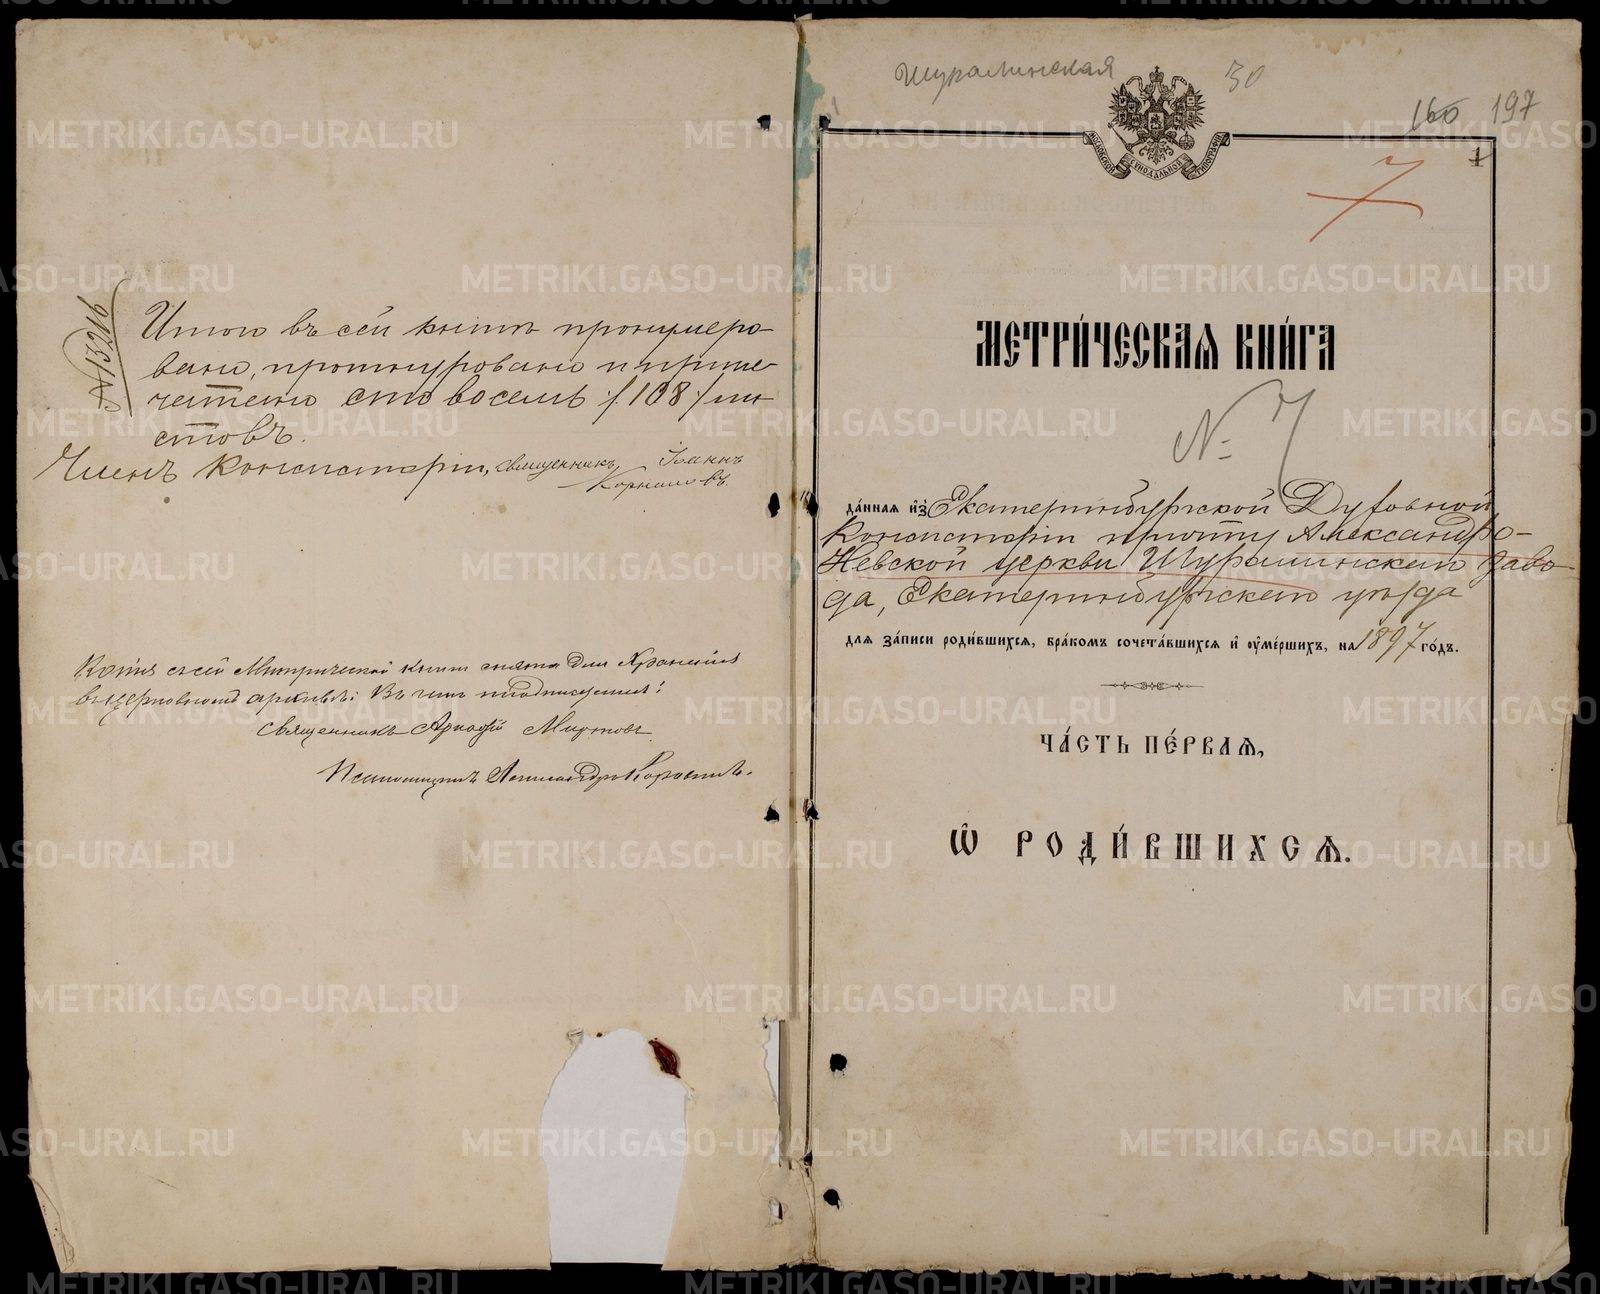 №13216
Итого въ сей книгѣ пронумеро-
вано, прошнуровано и припе-
чатано сто восемь /108/ ли-
стовъ.
Членъ Консисторіи, священникъ Іоаннъ
Корниловъ.
Копія съ сей Метрической книги снята для храненія
въ церковномъ архивѣ: въ чемъ и подписуемся:
Священникъ Аркадій
Псаломщикъ Александръ
Шуралинская 30
160 197
1
7
МОСКОВСКОЙ СѴНОДАЛЬНОЙ ТИПОГРАФІИ
МЕТРИ́ЧЕСКАѦ КНИ́ГА
№ 7
да́ннаѧ и҆з̾ Екатеринбургской Духовной
Консисторіи причту Александро-
Невской церкви Шуралинскаго заво-
да, Екатеринбургскаго уѣзда
длѧ за́писи роди́вшихсѧ, бра́комъ сочета́вшихсѧ и҆ ᲂу҆ме́ршихъ, на 1897 го́дъ.
ЧА́СТЬ ПЕ́РВАѦ,
Ѡ҆ РОДИ́ВШИХСѦ.
METRIKI.GASO-URAL.RU